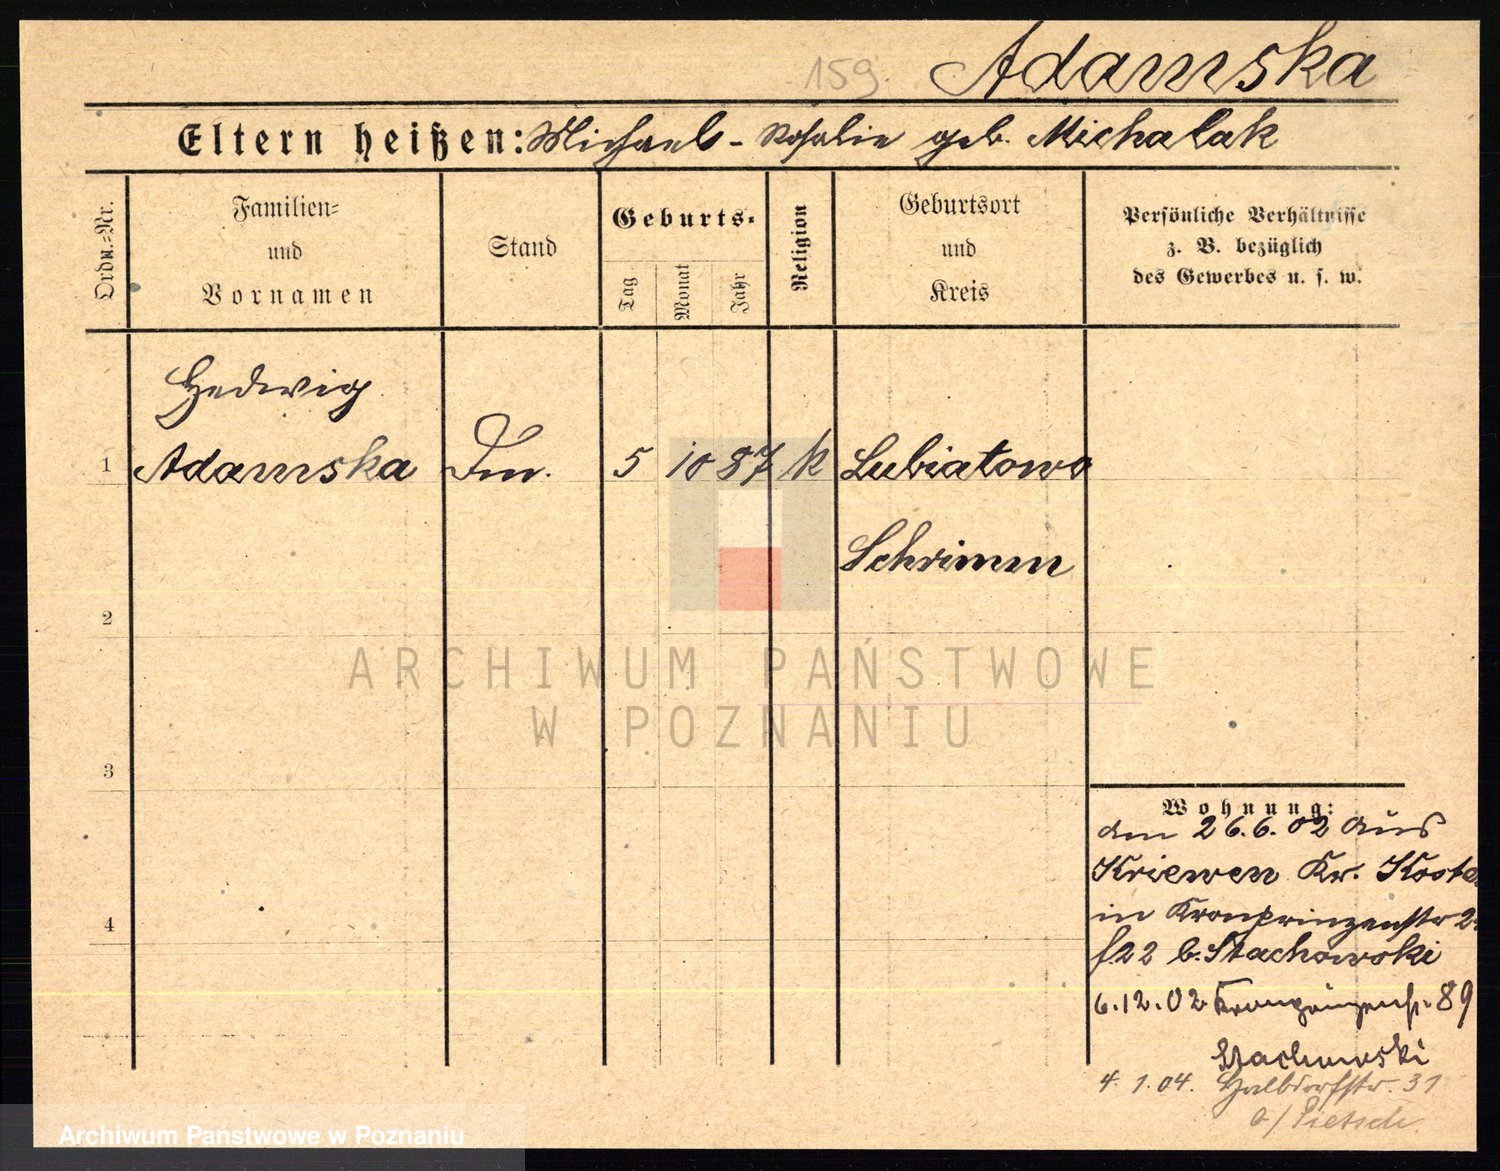 159 Adamska
Eltern heißen: Michael - Rosalie geb. Michalak
Ordn.=Nr.
Familien=
und
Vornamen
Stand
Geburts=
Tag
Monat
Jahr
Religion
Geburtsort
und
Kreis
Persönliche Verhältnisse
z. B. bezüglich
des Gewerbes u. s. w.
Hedwig
1 Adamska 5 10 87 k Lubiatowo
Schrimm
2
ARCHIWUM PAŃSTWOWE
W POZNANIU
3
Wohnung:
den 26.6.02 aus
Kriewen Kr. Koste
4
in Kronprinzenstr
22 b. Stachowski
6.12.02 Kronprinzenstr. 89
Stachowski
4.1.04. Halbdorfstr. 31
b/ Pietsch.
Archiwum Państwowe w Poznaniu